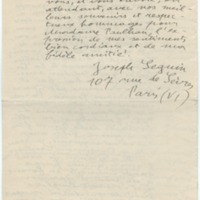 attendant, avec nos meil-
leurs souvenirs et respec-
tueux hommages pour
Madame Paulhan, l'ex-
pression de nos sentiments
bien cordiaux et de ma
fidèle amitié.
Joseph Seguin
107 rue de Sèvres
Paris (VI)